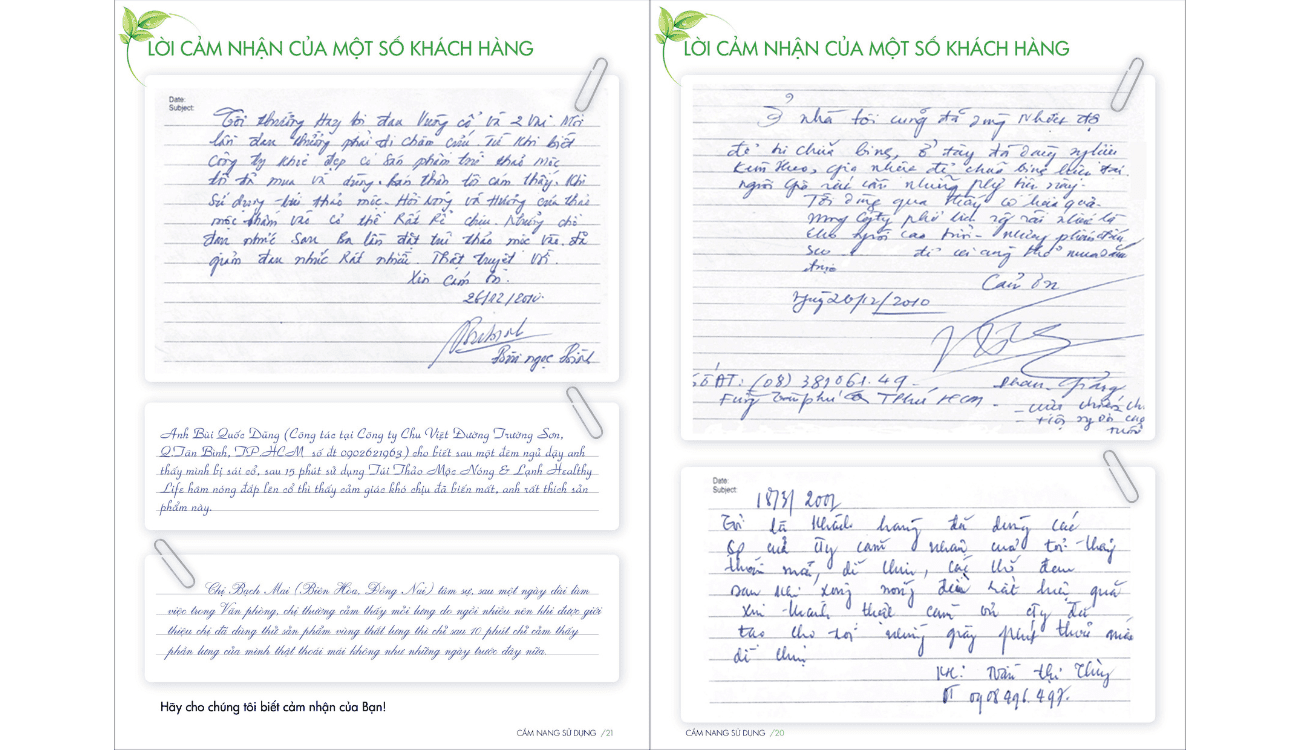 LỜI CẢM NHẬN CỦA MỘT SỐ KHÁCH HÀNG
Date:
Subject:
Tôi thường Hay bị đau Vướng cổ và 2 Vai Mỗi
lần đau thường phải đi châm cứu. Từ khi biết
Công ty Khoẻ đẹp có sản phẩm túi thảo mộc
tôi đã mua và dùng. bản thân tôi cảm thấy. Khi
Sử dụng túi thảo mộc. Hơi nóng và Hương của thảo
mộc thấm vào cơ thể Rất Rễ chịu. Những chỗ
đau nhức Sau Ba lần đặt túi thảo mộc vào. đã
giảm đau nhức Rất nhiều. Thật tuyệt vời.
Xin Cám ơn.
26/12/2010.
Bùi ngọc
Anh Bùi Quốc Dũng (Công tác tại Công ty Chu Việt Đường Trường Sơn,
Q.Tân Bình, TP.HCM số đt 0902621963) cho biết sau một đêm ngủ dậy anh
thấy mình bị sái cổ, sau 15 phát sử dụng Túi Thảo Mộc Nóng & Lạnh Healthy
Life hâm nóng đắp lên cổ thì thấy cảm giác khó chịu đã biến mất, anh rất thích sản
phẩm này.
Chị Bạch Mai (Biên Hòa, Đồng Nai) tâm sự, sau một ngày dài làm
việc trong Văn phòng, chị thường cảm thấy mỏi lưng do ngồi nhiều nên khi được giới
thiệu chị đã dùng thử sản phẩm vùng thắt lưng thì chỉ sau 10 phút chị cảm thấy
phần lưng của mình thật thoải mái không như những ngày trước đây nữa.
Hãy cho chúng tôi biết cảm nhận của Bạn!
CẨM NANG SỬ DỤNG /21
LỜI CẢM NHẬN CỦA MỘT SỐ KHÁCH HÀNG
Ở nhà tôi cũng đã dùng nhiều
để trị chữa bệnh, ở đây đã dùng
người già rất cần những
Tôi dùng qua thấy có hiệu quả.
mong Cty phổ biến rộng rãi nhất là
cho người cao tuổi - những
để ai cũng thể mua
được
Cảm ơn
Ngày 26/12/2010
Số ĐT: (08) 381061.49 -
Date:
Subject:
18/3/
Tôi là khách hàng đã dùng các
sp của cty cảm nhận của tôi thấy
thoải mái, dễ chịu,
sau khi xong nóng rất hiệu quả
xin thành thật cảm ơn cty đã
tạo cho tôi những giây phút thoải mái
dễ chịu
KH: Trần thị Thùy
ĐT 0908496.497.
CẨM NANG SỬ DỤNG /20